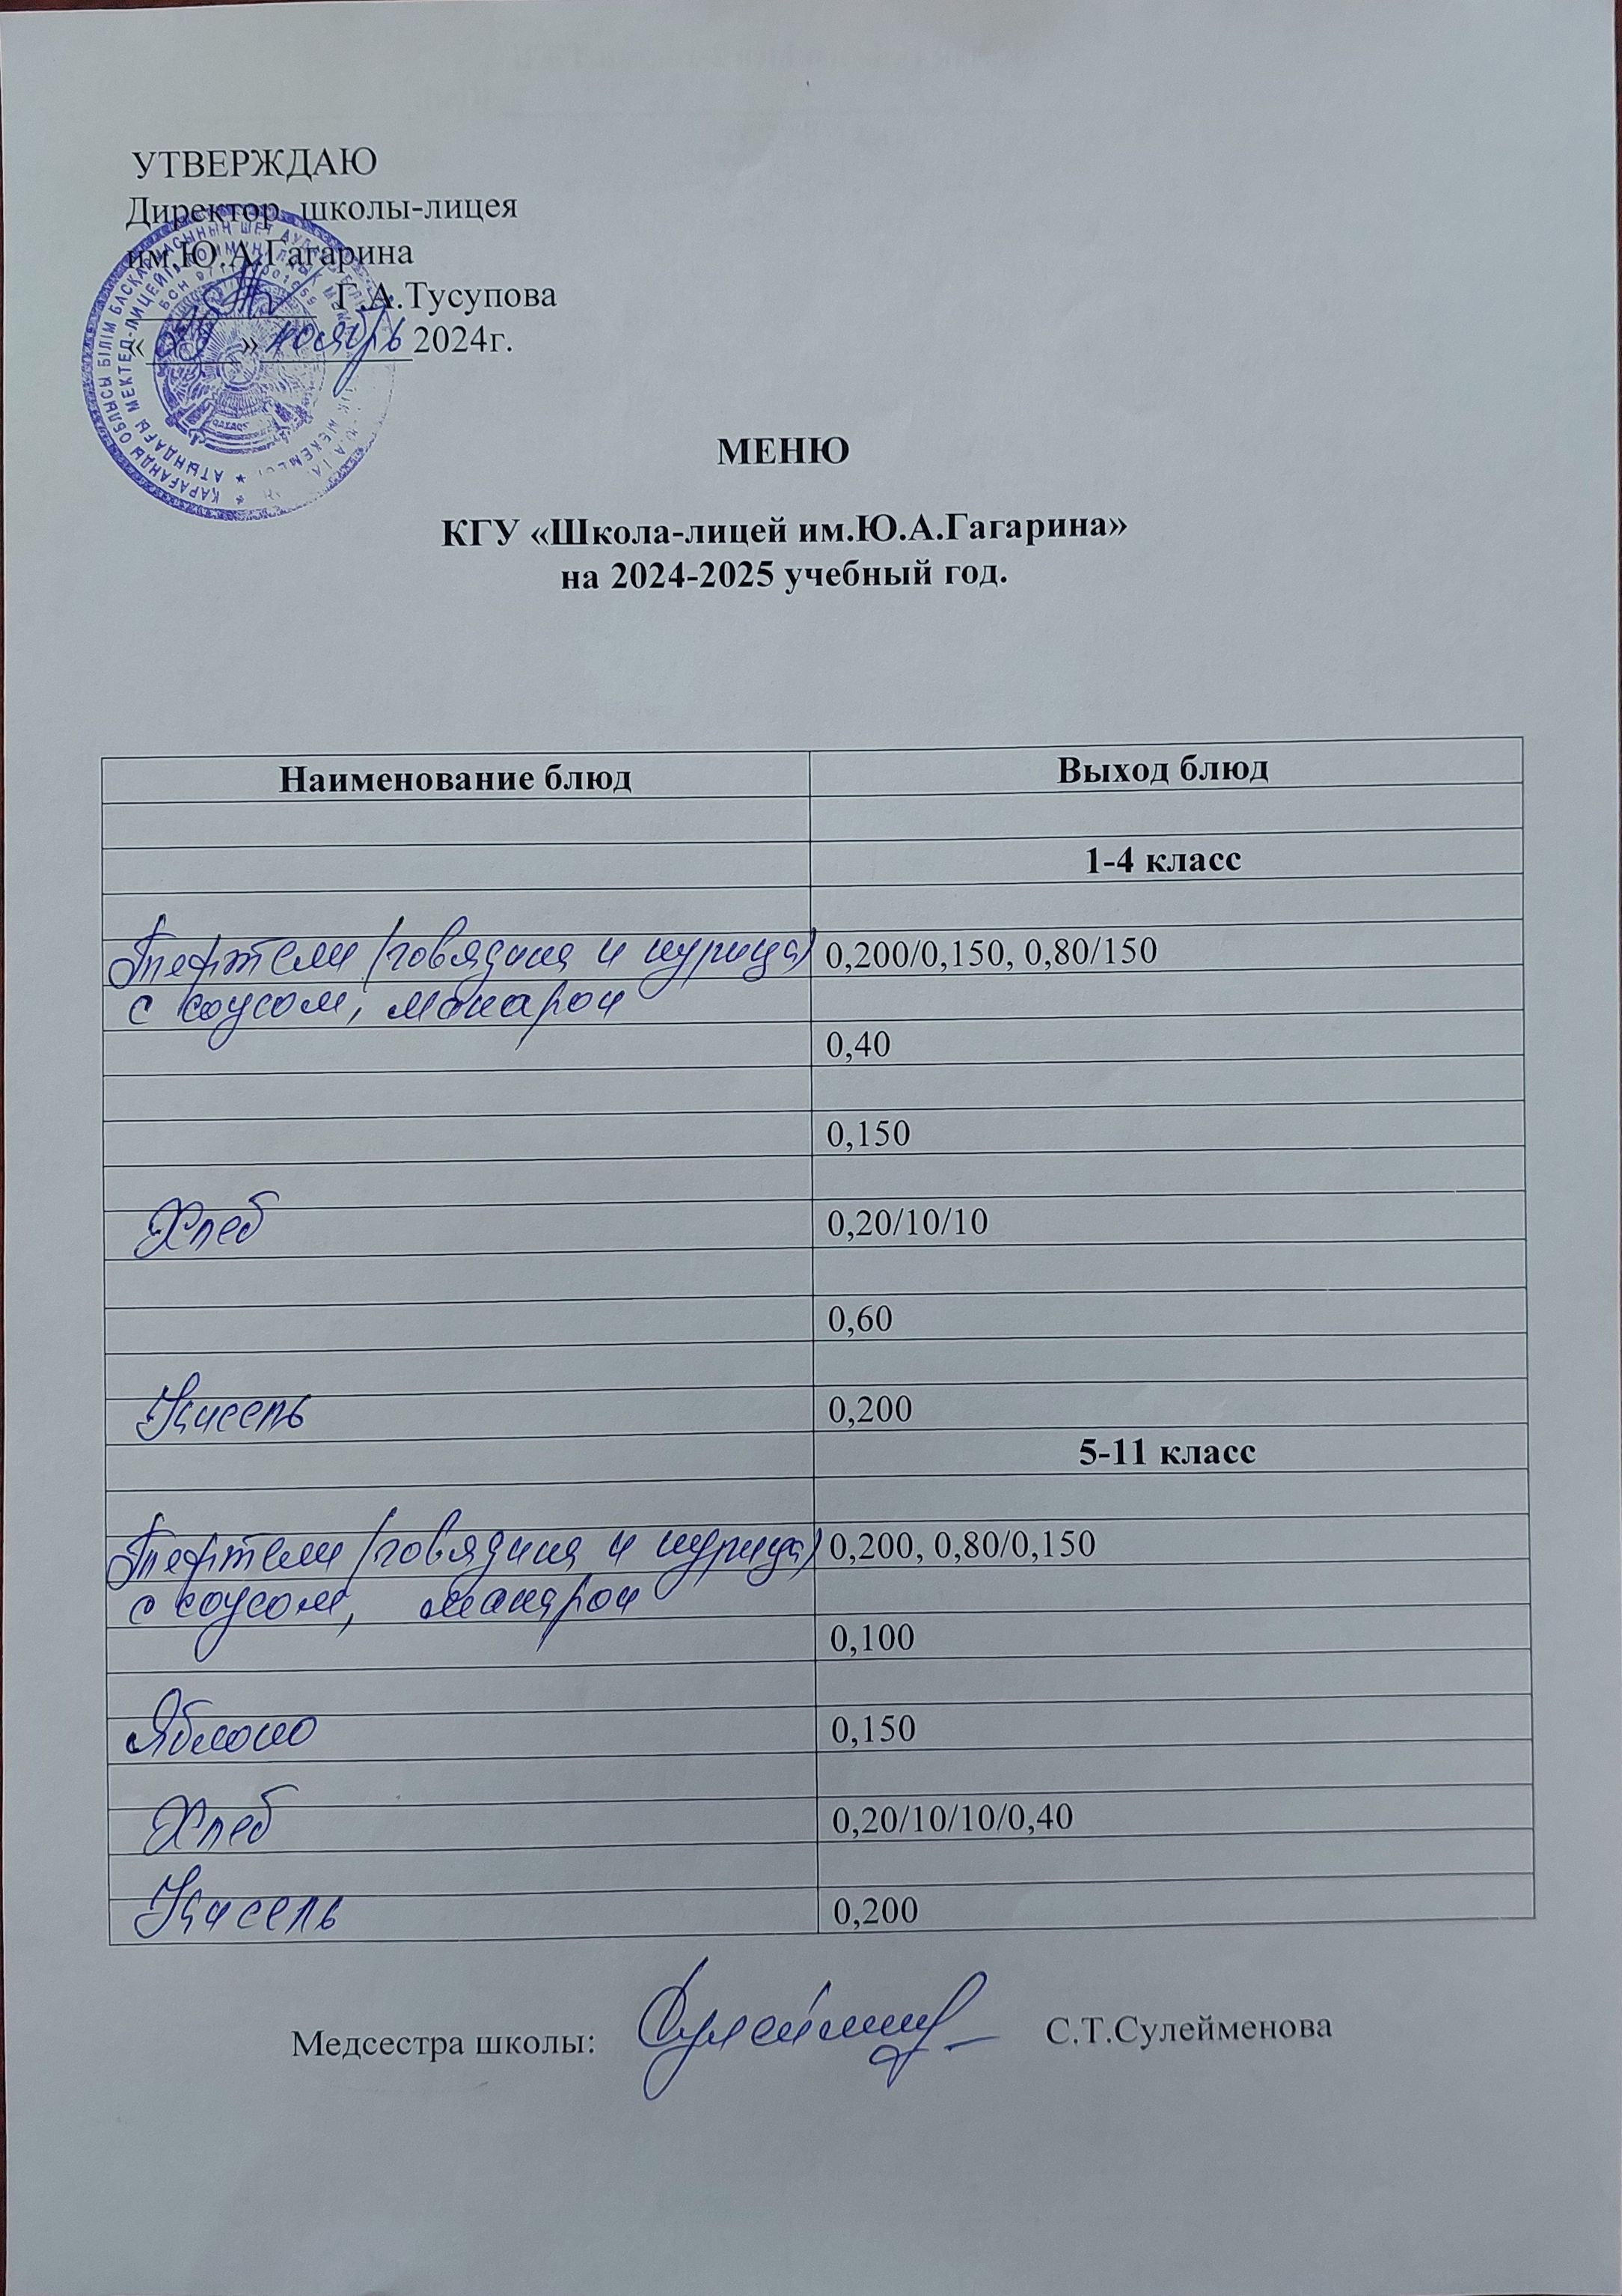 УТВЕРЖДАЮ
Директор школы-лицея
им.Ю.А.Гагарина
Г.А.Тусупова
« » ноябрь 2024г.
МЕНЮ
КГУ «Школа-лицей им.Ю.А.Гагарина»
на 2024-2025 учебный год.
Наименование блюд Выход блюд
1-4 класс
Тефтели (говядина и курица) 0,200/0,150, 0,80/150
с соусом, макарон
0,40
0,150
Хлеб 0,20/10/10
0,60
Кисель 0,200
5-11 класс
Тефтели (говядина и курица) 0,200, 0,80/0,150
с соусом, макарон
0,100
Яблоко 0,150
Хлеб 0,20/10/10/0,40
Кисель 0,200
Медсестра школы: С.Т.Сулейменова